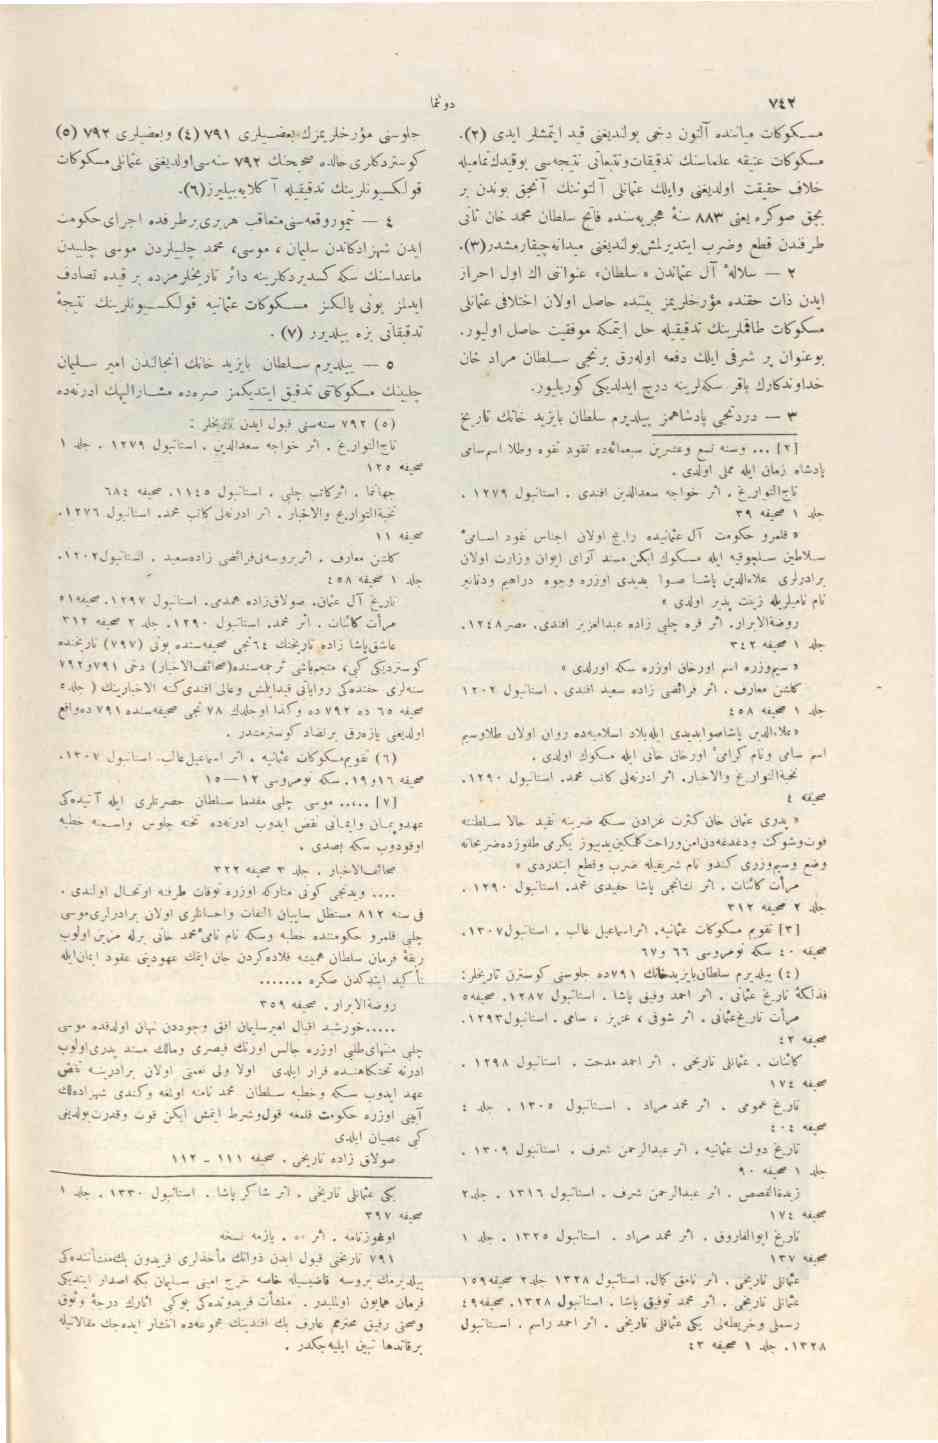 ٧٤٢
دونما
مسكوكات میاننده آلتون دخی بولندیغنی قید ایتمشلر ایدی (٢).
مسكوكات عتیقه علماسنك تدقیقات وتتبعاتی نتیجه‌سی بوقیدك تمامیله
خلاف حقیقت اولدیغنی وایلك عثمانلی آلتوننك آنجق بوندن بر
بچق صوكره یعنی ٨٨٣ سنهٔ هجریه‌سنده فاتح سلطان محمد خان ثانی
طرفندن قطع وضرب ایتدیرلمش بولندیغنی میدانه چیقارمشدر(٣).
٢ — سلالهٔ آل عثماندن «سلطان» عنواننی اك اول احراز
ایدن ذات حقنده مؤرخلریمز بیننده حاصل اولان اختلافی عثمانلی
مسكوكات طاقملرینك تدقیقیله حل ایتمكه موفقیت حاصل اولیور.
بوعنوان پر شرفی ایلك دفعه اوله‌رق برنجی سلطان مراد خان
خداوندكارك باقر سكه‌لرینه درج ایدلدیكی كوریلیور.
٣ — دردنجی پادشاهمز ییلدیرم سلطان بایزید خانك تاریخ
[٢] ... وسنه تسع وعشرین سبعمائه‌ده نقود نقره وطلا اسم سامی
پادشاه زمان ایله محلی اولدی .
تاج‌التواریخ . اثر خواجه سعدالدین افندی . استانبول ١٢٧٩ .
جلد ١ صحیفه ٣٩
« قلمرو حكومت آل عثمانیده رایج اولان اجناس نقود اسامیٔ
سلاطین سلچوقیه ایله مسكوك ایكن مسند آرای ایوان وزارت اولان
برادرلری علاءالدین پاشا صوابدیدی اوزره وجوه دراهم ودنانیر
نام نامیلریله زینت پذیر اولدی »
روضةالابرار. اثر قره چلبی زاده عبدالعزیز افندی. مصر ١٢٤٨.
جلد ١ صحیفه ٣٤٢
« سیم وزره اسم اورخان اوزره سكه اورلدی »
كلشن معارف . اثر فرائضی زاده سعید افندی . استانبول ١٢٠٢
جلد ١ صحیفه ٤٥٨
«علاءالدین پاشا صوابدیدی ایله بلاد اسلامیه‌ده روان اولان طلا وسیم
اسم سامی ونام كرامیٔ اورخان خانی ایله مسكوك اولدی .
نخبةالتواریخ والاخبار. اثر ادرنه‌لی كاتب محمد. استانبول ١٢٩٠.
صحیفه ٤
« پدری عثمان خان كثرت غزادن سكه ضربنه تقید حالا سلطنته
وضع وسیم وزری كندو نام شریفیله ضرب وقطع ایتدردی »
مرآت كائنات . اثر نشانجی پاشا حفیدی محمد. استانبول ١٢٩٠ .
جلد ٢ صحیفه ٣١٢
[٣] تقویم مسكوكات عثمانیه. اثر اسماعیل غالب . استانبول ١٣٠٧.
صحیفه ٤٠ سكه نومروسی ٦٦ و ٦٧
(٤) ییلدیرم سلطان بایزید خانك ٧٩١ده جلوسنی كوسترن تاریخلر:
فذلكهٔ تاریخ عثمانی . اثر احمد وفیق پاشا . استانبول ١٢٨٧. صحیفه ٥
مرآت تاریخ عثمانی . اثر شوقی ، عزیز ، سامی . استانبول ١٢٩٣.
صحیفه ٤٢
كائنات . عثمانلی تاریخی . اثر احمد مدحت . استانبول ١٢٩٨ .
صحیفه ١٧٤
تاریخ عمومی . اثر محمد مراد . استانبول ١٣٠٥ . جلد ٤
صحیفه ٤٠٤
تاریخ دولت عثمانیه . اثر عبدالرحمن شرف . استانبول ١٣٠٩ .
جلد ١ صحیفه ٩٠
زبدةالقصص . اثر عبدالرحمن شرف . استانبول ١٣١٦ . جلد ٢
صحیفه ١٧٤
تاریخ ابوالفاروق . اثر محمد مراد . استانبول ١٣٢٥ . جلد ١
صحیفه ١٣٧
عثمانلی تاریخی . اثر نامق كمال. استانبول ١٣٢٨ جلد ٢ صحیفه ١٥٩
عثمانلی تاریخی . اثر محمد توفیق پاشا . استانبول ١٣٢٨. صحیفه ٤٩
رسملی وخریطه‌لی یكی عثمانلی تاریخی . اثر احمد راسم . استانبول
١٣٢٨. جلد ١ صحیفه ٤٣
جلوسنی مؤرخلریمزك بعضیلری ٧٩١ (٤) وبعضیلری ٧٩٢ (٥)
كوستردكلری حالده صحیحنك ٧٩٢ سنه‌سی اولدیغنی عثمانلی مسكوكات
قولكسیونلرینك تدقیقیله آكلایه‌بیلیرز(٦).
٤ — تیمور وقعه‌سنی متعاقب هربری بر طرفده اجرای حكومت
ایدن شهزادكاندن سلیمان ، موسی ، محمد چلبیلردن موسی چلبیدن
ماعداسنك سكه كسدیردكلرینه دائر تاریخلرمزده بر قیده تصادف
ایدلمز بونی یالكز مسكوكات عثمانیه قولكسیونلرینك نتیجهٔ
تدقیقاتی بزه بیلدیرر (٧) .
٥ — ییلدیرم سلطان بایزید خانك انجالندن امیر سلیمان
چلبینك مسكوكاتنی تدقیق ایتدیكمز صره‌ده مشارالیهك ادرنه‌ده
(٥) ٧٩٢ سنه‌سنی قبول ایدن تاریخلر :
تاج‌التواریخ . اثر خواجه سعدالدین . استانبول ١٢٧٩ . جلد ١
صحیفه ١٢٥
جهاننما . اثر كاتب چلبی . استانبول ١١٤٥. صحیفه ٦٨٤
نخبةالتواریخ والاخبار . اثر ادرنه‌لی كاتب محمد. استانبول ١٢٧٦.
صحیفه ١١
كلشن معارف . اثر بروسه‌لی فرائضی زاده سعید . استانبول ١٢٠٢.
جلد ١ صحیفه ٤٥٨
تاریخ آل عثمان. صولاق زاده همدمی. استانبول ١٢٩٧. صحیفه ٥١
مرآت كائنات . اثر محمد. استانبول ١٢٩٠. جلد ٢ صحیفه ٣١٢
عاشق پاشا زاده تاریخنك ٦٤نجی صحیفه‌سنده بونی (٧٩٧) تاریخنده
كوستردیكی كبی، منجم باشی ترجمه‌سنده(صحائف‌الاخبار) دخی ٧٩١و٧٩٢
سنه‌لری حقنده‌كی روایاتی قیدایلمش وعالی افندی كنه الاخبارینك ( جلد ٥
صحیفه ٦٥ ده ٧٩٢ ده وكذا اوجلدك ٧٨ نجی صحیفه‌سنده ٧٩١ ده واقع
اولدیغنی یازه‌رق بر تضاد كوسترمشدر .
(٦) تقویم مسكوكات عثمانیه . اثر اسماعیل غالب. استانبول ١٣٠٧.
صحیفه ١٦و١٩. سكه نومروسی ١٢—١٥
[٧] ..... موسی چلبی مقدما سلطان حضرتلری ایله آتیده‌كی
عهدوپیمان وایمانی نقض ایدوب ادرنه‌ده تخته جلوس واسمنه خطبه
اوقودوب سكه بصدی .
صحائف‌الاخبار . جلد ٣ صحیفه ٣٢٢
.... ویدنجی كونی متاركه اوزره توقات طرفنه ارتحال اولندی .
فی سنه ٨١٢ مستظل سایبان التفات واحسانلری اولان برادرلری موسی
چلبی قلمرو حكومتنده خطبه وسكه نام نامیٔ محمد خانی برله مزین اولوب
ربقهٔ فرمان سلطان همیشه قلاده كردن جان ایتمك عهودینی عقود ایمان ایله
تأكید ایتدكدن صكره .......
روضةالابرار . صحیفه ٣٥٩
.....خورشید اقبال امیر سلیمان افق وجوددن نهان اولدقده موسی
چلبی منتهای طلبی اوزره جالس اورنك قیصری ومالك مسند پدری اولوب
ادرنه تختكاهنده قرار ایلدی اولا ولی نعمتی اولان برادرینه نقض
عهد ایدوب سكه وخطبه سلطان محمد نامنه اولمغه وكندی شهزاده‌لك
آیینی اوزره حكومت قلمغه قول وشرط ایتمش ایكن قوت وقدرت بولدیغی
كبی عصیان ایلدی
صولاق زاده تاریخی . صحیفه ١١١ - ١١٢
یكی عثمانلی تاریخی . اثر شاكر پاشا . استانبول ١٣٣٠ . جلد ١
صحیفه ٣٩٧
اوغوزنامه . اثر .. یازمه نسخه
٧٩١ تاریخنی قبول ایدن ذواتك مأخذلری فریدون بك منشأتنده‌كی
ییلدیرمك بروسه قاضیسیله خاصه خرج امینی سلیمان بكه اصدار ایتدیكی
فرمان همایون اولملیدر . منشأت فریدونده‌كی بوكبی آثارك درجهٔ وثوق
وصحتی رفیق محترمم عارف بك افندینك مجموعه‌ده انتشار ایده‌جك مقالاتیله
برقاتدها تبین ایلیه‌جكدر .